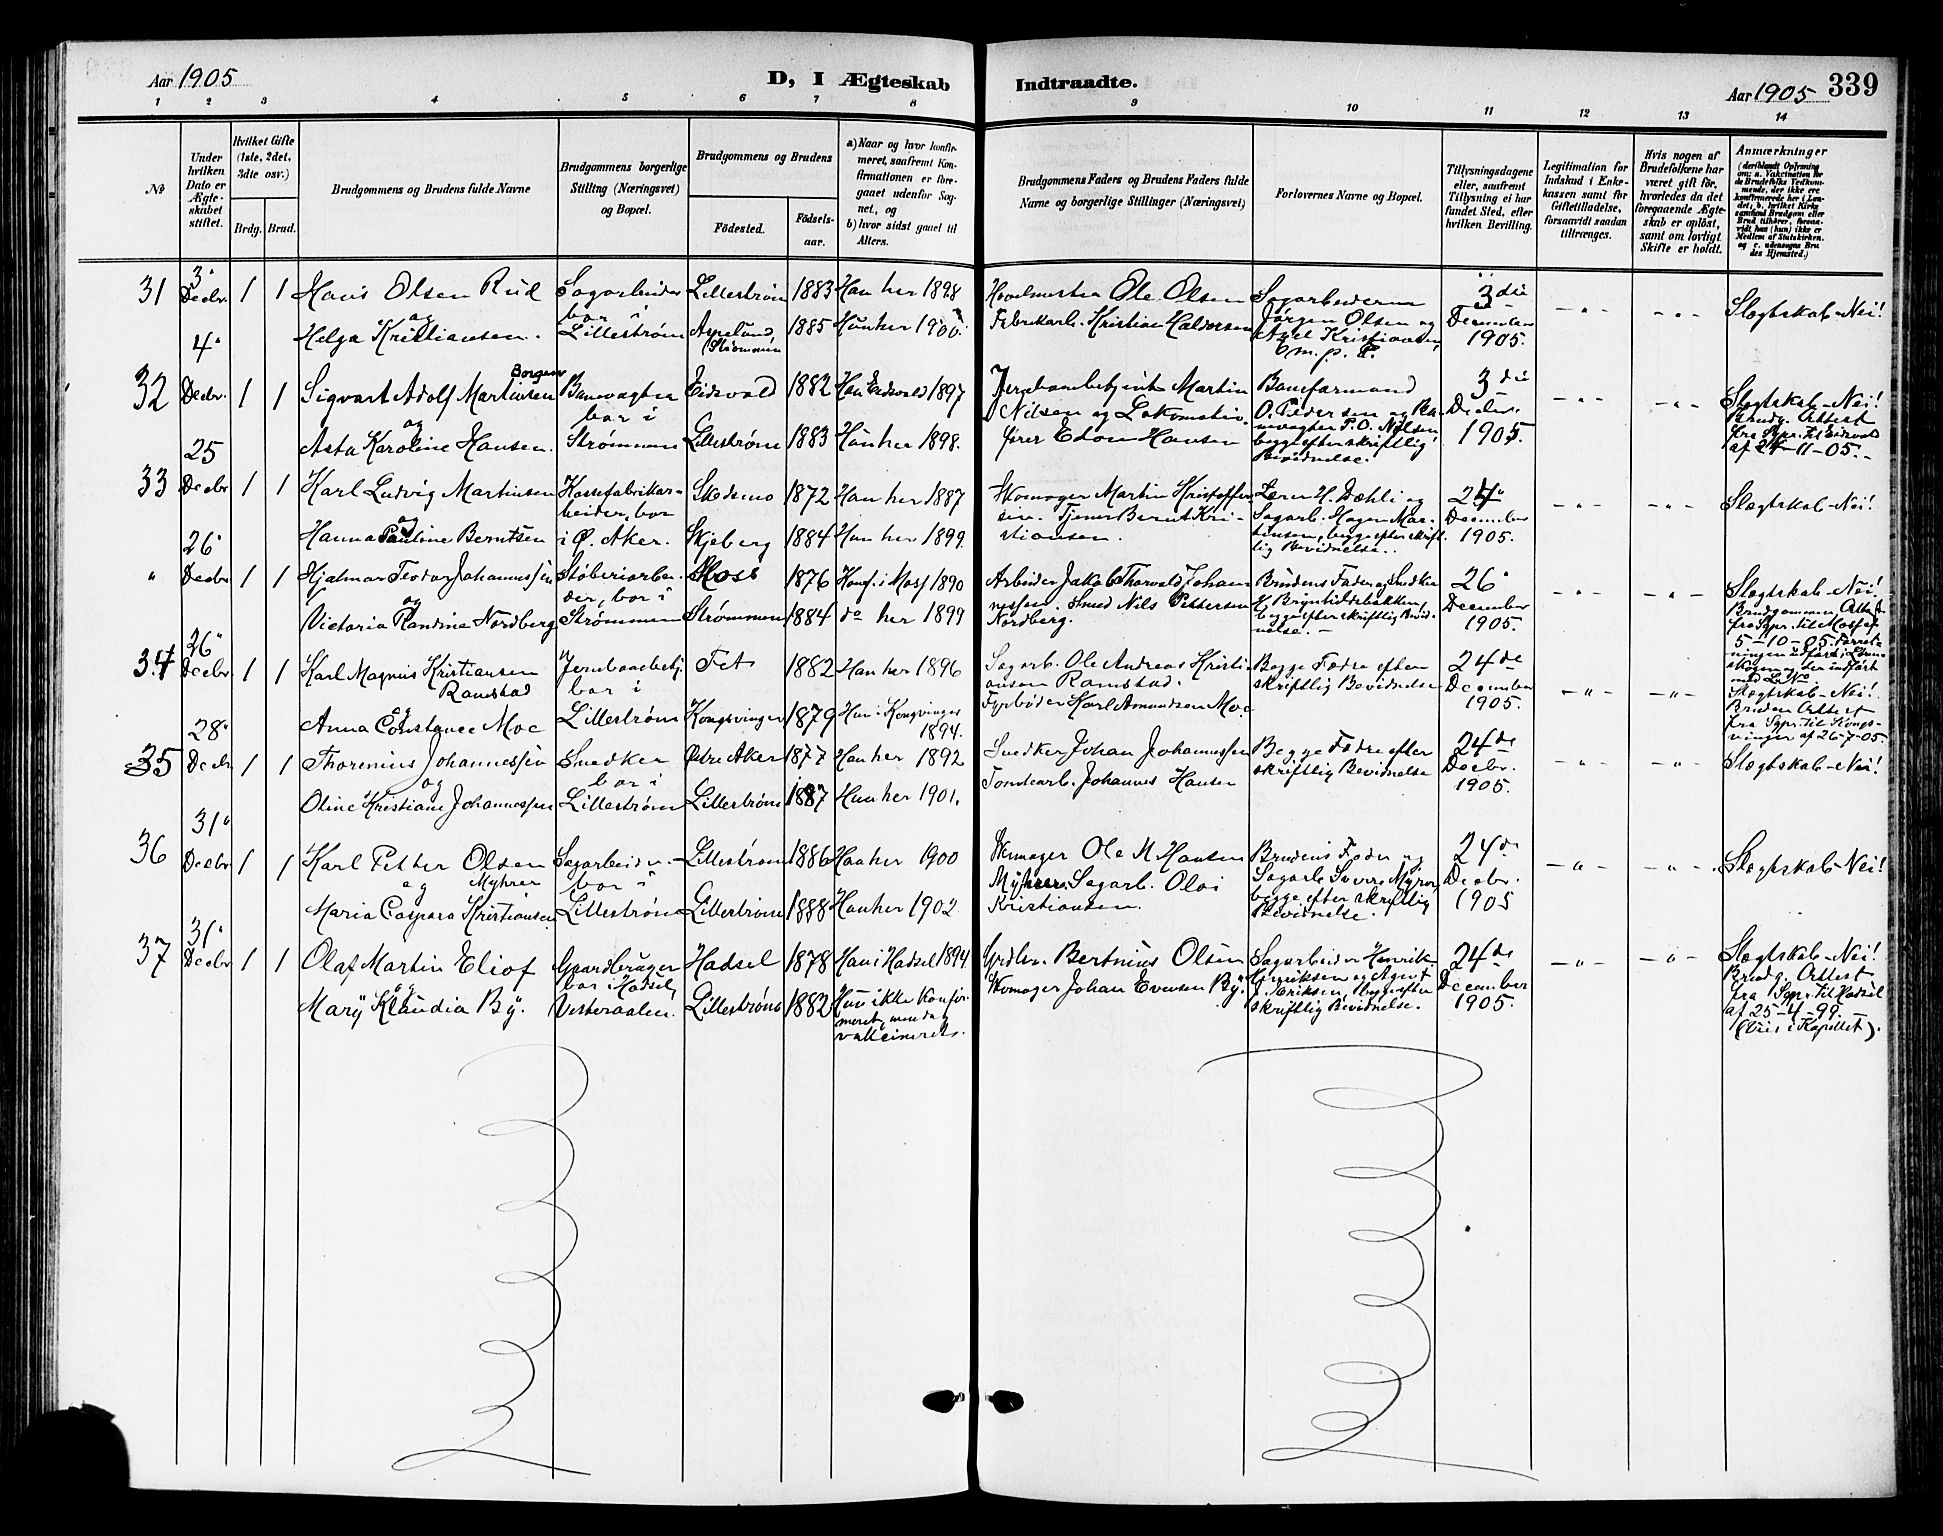 Aar 1905
D, I Ægteskab
Indtraadte.
Aar 1905
339
1 2 3 4 5 6 7 8 9 10 11 12 13 14
No
Under hvilken Dato er Ægteskabet stiftet.
Hvilket Gifte (1ste, 2det, 3die osv.)
Brdg. Brud.
Brudgommens og Brudens fulde Navne
Brudgommens borgerlige Stilling (Næringsvei) og Bopæl.
Brudgommens og Brudens
Fødested. Fødselsaar.
a) Naar og hvor konfirmeret, saafremt Konfirmationen er foregaaet udenfor Sognet, og
b) hvor sidst gaaet til Alters.
Brudgommens Faders og Brudens Faders fulde Navne og borgerlige Stillinger (Næringsvei)
Forlovernes Navne og Bopæl.
Tillysningsdagene eller, saafremt Tillysning ei har fundet Sted, efter hvilken Bevilling.
Legitimation for Indskud i Enkekassen samt for Giftetilladelse, forsaavidt saadan tiltrænges.
Hvis nogen af Brudefolkene har været gift før, hvorledes da det foregaaende Ægteskab er opløst, samt om lovligt Skifte er holdt.
Anmærkninger
(deriblandt Oplysning om: a. Vakcination for de Brudefolks Vedkommende, der ikke ere konfirmerede her i Landet, b. hvilket Kirkesamfund Brudgom eller Brud tilhører, forsaavidt han (hun) ikke er Medlem af Statskirken, og c. udensogns Brudes Hjemsted.)
31 3" Decbr. 1 1 Hans Olsen Rud
og
Helga Kristiansen.
Sagarbeider bor i Lillestrøm
Lillestrøm 1883 Han her 1898
Strømmen 1885 Hun her 1900
Ole Olsen
Fabrikarb. Kristian Haldorsen
Sagarbeiderne Jørgen Olsen og Axel Kristiansen
3die December 1905.
Slægtskab - Nei!
32 4" Decbr. 1 1 Sigvart Adolf Martinsen Borgen
og
Asta Karoline Hansen.
Banevogter bor i Strømmen
Eidsvold 1882 Han Eidsvold 1897
Lillestrøm 1883 Hun her 1898.
Jernbanebetjent Martin Nilsen og Lokomotivfører Edon Hansen
Baneformand O. Pedersen og Banevogter P. O. Nilsen, begge efter skriftlig Bevidnelse.
3die Decbr. 1905.
Slægtskab - Nei!
Brudg. Attest fra Spr. til Eidsvold af 24-11-05.
33 25 Decbr 1 1 Karl Ludvig Martinsen
og
Hanna Pauline Berntsen
Kassefabrikarbeider, bor i Ø. Aker.
Skedsmo 1872 Han her 1887
Skjeberg 1884 Hun her 1899.
Skomager Martin Kristoffersen. Tjener Bernt Kristiansen.
Lærer H. Dæhli og Sagarb. Hagen Martinsen, begge efter skriftlig Bevidnelse.
24" December 1905.
Slægtskab - Nei!
" 26" Decbr 1 1 Hjalmar Teodor Johannessen
og
Victoria Randine Nordberg
Støberiarbeider, bor i Strømmen
Moss 1876 Konf. i Moss 1890
Strømmen 1884 do her 1899
Arbeider Jakob Thorvald Johannessen. Smed Nils Pettersen Nordberg.
Brudens Fader og Snedker H. Brynhildsbakken, begge efter skriftlig Bevidnelse. -
26" December 1905.
Slægtskab - Nei!
Brudgommens Attest fra Spr. til Moss af 5-10-05.
34 26" Decbr 1 1 Karl Magnus Kristiansen Ramstad
og
Anna Constance Moe
Jernbanebetj. bor i Lillestrøm
Fet 1882 Han her 1896
Kongsvinger 1879 Hun i Kongsvinger 1894.
Sagarb. Ole Andreas Kristiansen Ramstad.
Fyrbøder Karl Amundsen Moe
Begge Fædre efter skriftlig Bevidnelse
24de December 1905.
Slægtskab - Nei!
Brudens Attest fra Spr. til Kongsvinger af 26-7-05.
35 28" Decbr 1 1 Thorenius Johannessen
og
Oline Kristiane Johannessen
Snedker bor i Lillestrøm
Østre Aker 1877 Han her 1892
Lillestrøm 1887 Hun her 1901.
Snedker Johan Johannessen
Tomtearb. Johannes Hansen
Begge Fædre efter skriftlig Bevidnelse
24de Decbr. 1905.
Slægtskab - Nei!
36 31" Decbr 1 1 Karl Petter Olsen Myhrer
og
Maria Caspara Kristiansen
Sagarbeider bor i Lillestrøm
Lillestrøm 1886 Han her 1900
Lillestrøm 1888 Hun her 1902
Skomager Ole M Hansen Myhrer. Sagarb. Olai Kristiansen.
Brudens Fader og Sagarb. Syver Myrer, begge efter skriftlig Bevidnelse.
24de Decbr. 1905
Slægtskab - Nei!
37 31" Decbr 1 1 Olaf Martin Eliof
og
Mary Klaudia By.
Gaardbruger bor i Hadsel, Vesteraalen.
Hadsel 1878 Han i Hadsel 1894
Lillestrøm 1882 Hun ikke konfirmeret, men dog vakcineret.
Grdbr. Bertnius Olsen
Skomager Johan Evensen By.
Sagarbeider Henrik Henriksen og Agent Eriksen, begge efter skriftlig Bevidnelse.
24de December 1905.
Slægtskab - Nei!
Brudg. Attest fra Spr. til Hadsel af 25-4-99.
(Viet i Kapellet).